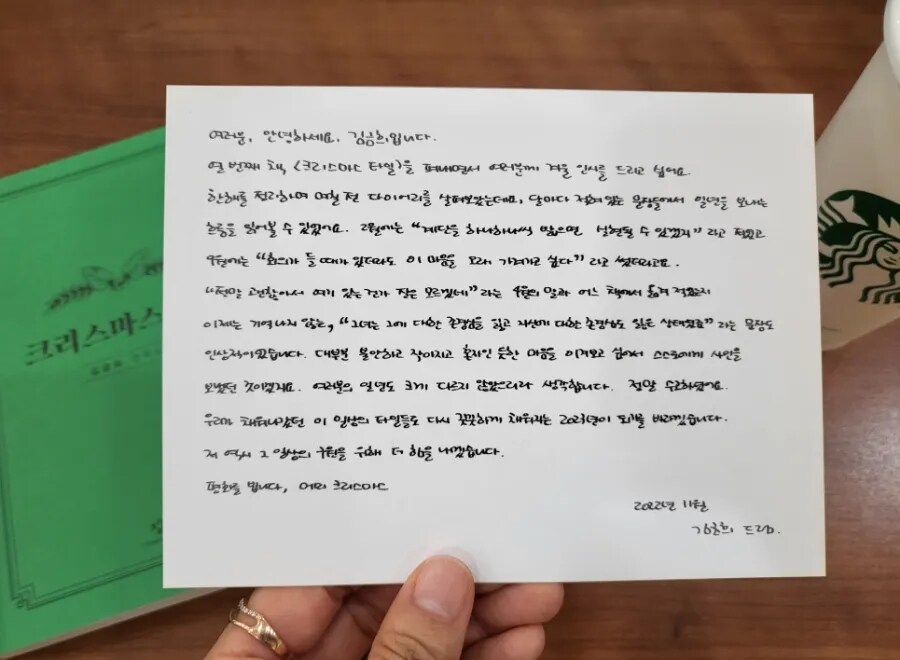 여러분, 안녕하세요. 김금희입니다.
열 번째 책, <크리스마스 타일>을 펴내면서 여러분께 겨울 인사를 드리고 싶어요.
한해를 정리하며 며칠 전 다이어리를 살펴보았는데요, 달마다 적혀 있는 문장들에서 일년을 보내는
흐름을 읽어볼 수 있었어요. 2월에는 "계단을 하나하나씩 밟으면 실현될 수 있겠지" 라고 적었고
4월에는 "회의가 들 때가 있더라도 이 마음을 오래 가져가고 싶다" 라고 썼더라고요.
"정말 괜찮아서 여기 있는 건가 잘은 모르겠네" 라는 4월의 말과 어느 책에서 옮겨 적었는지
이제는 기억나지 않는, "그녀는 그에 대한 존경심을 잃고 자신에 대한 존경심도 잃은 상태였죠" 라는 문장도
인상적이었습니다. 대부분 불안하고 작아지고 혼자인 듯한 마음을 이겨보고 싶어서 스스로에게 사인을
보냈던 것이겠지요. 여러분의 일년도 크게 다르지 않았으리라 생각합니다. 정말 수고하셨어요.
우리가 채워나갔던 이 일상의 타일들로 다시 꿋꿋하게 채워지는 2023년이 되기를 바라겠습니다.
저 역시 그 일상의 구원을 위해 더 힘을 내겠습니다.
평화를 빕니다, 메리 크리스마스
2022년 11월
김금희 드림.
크리스마스